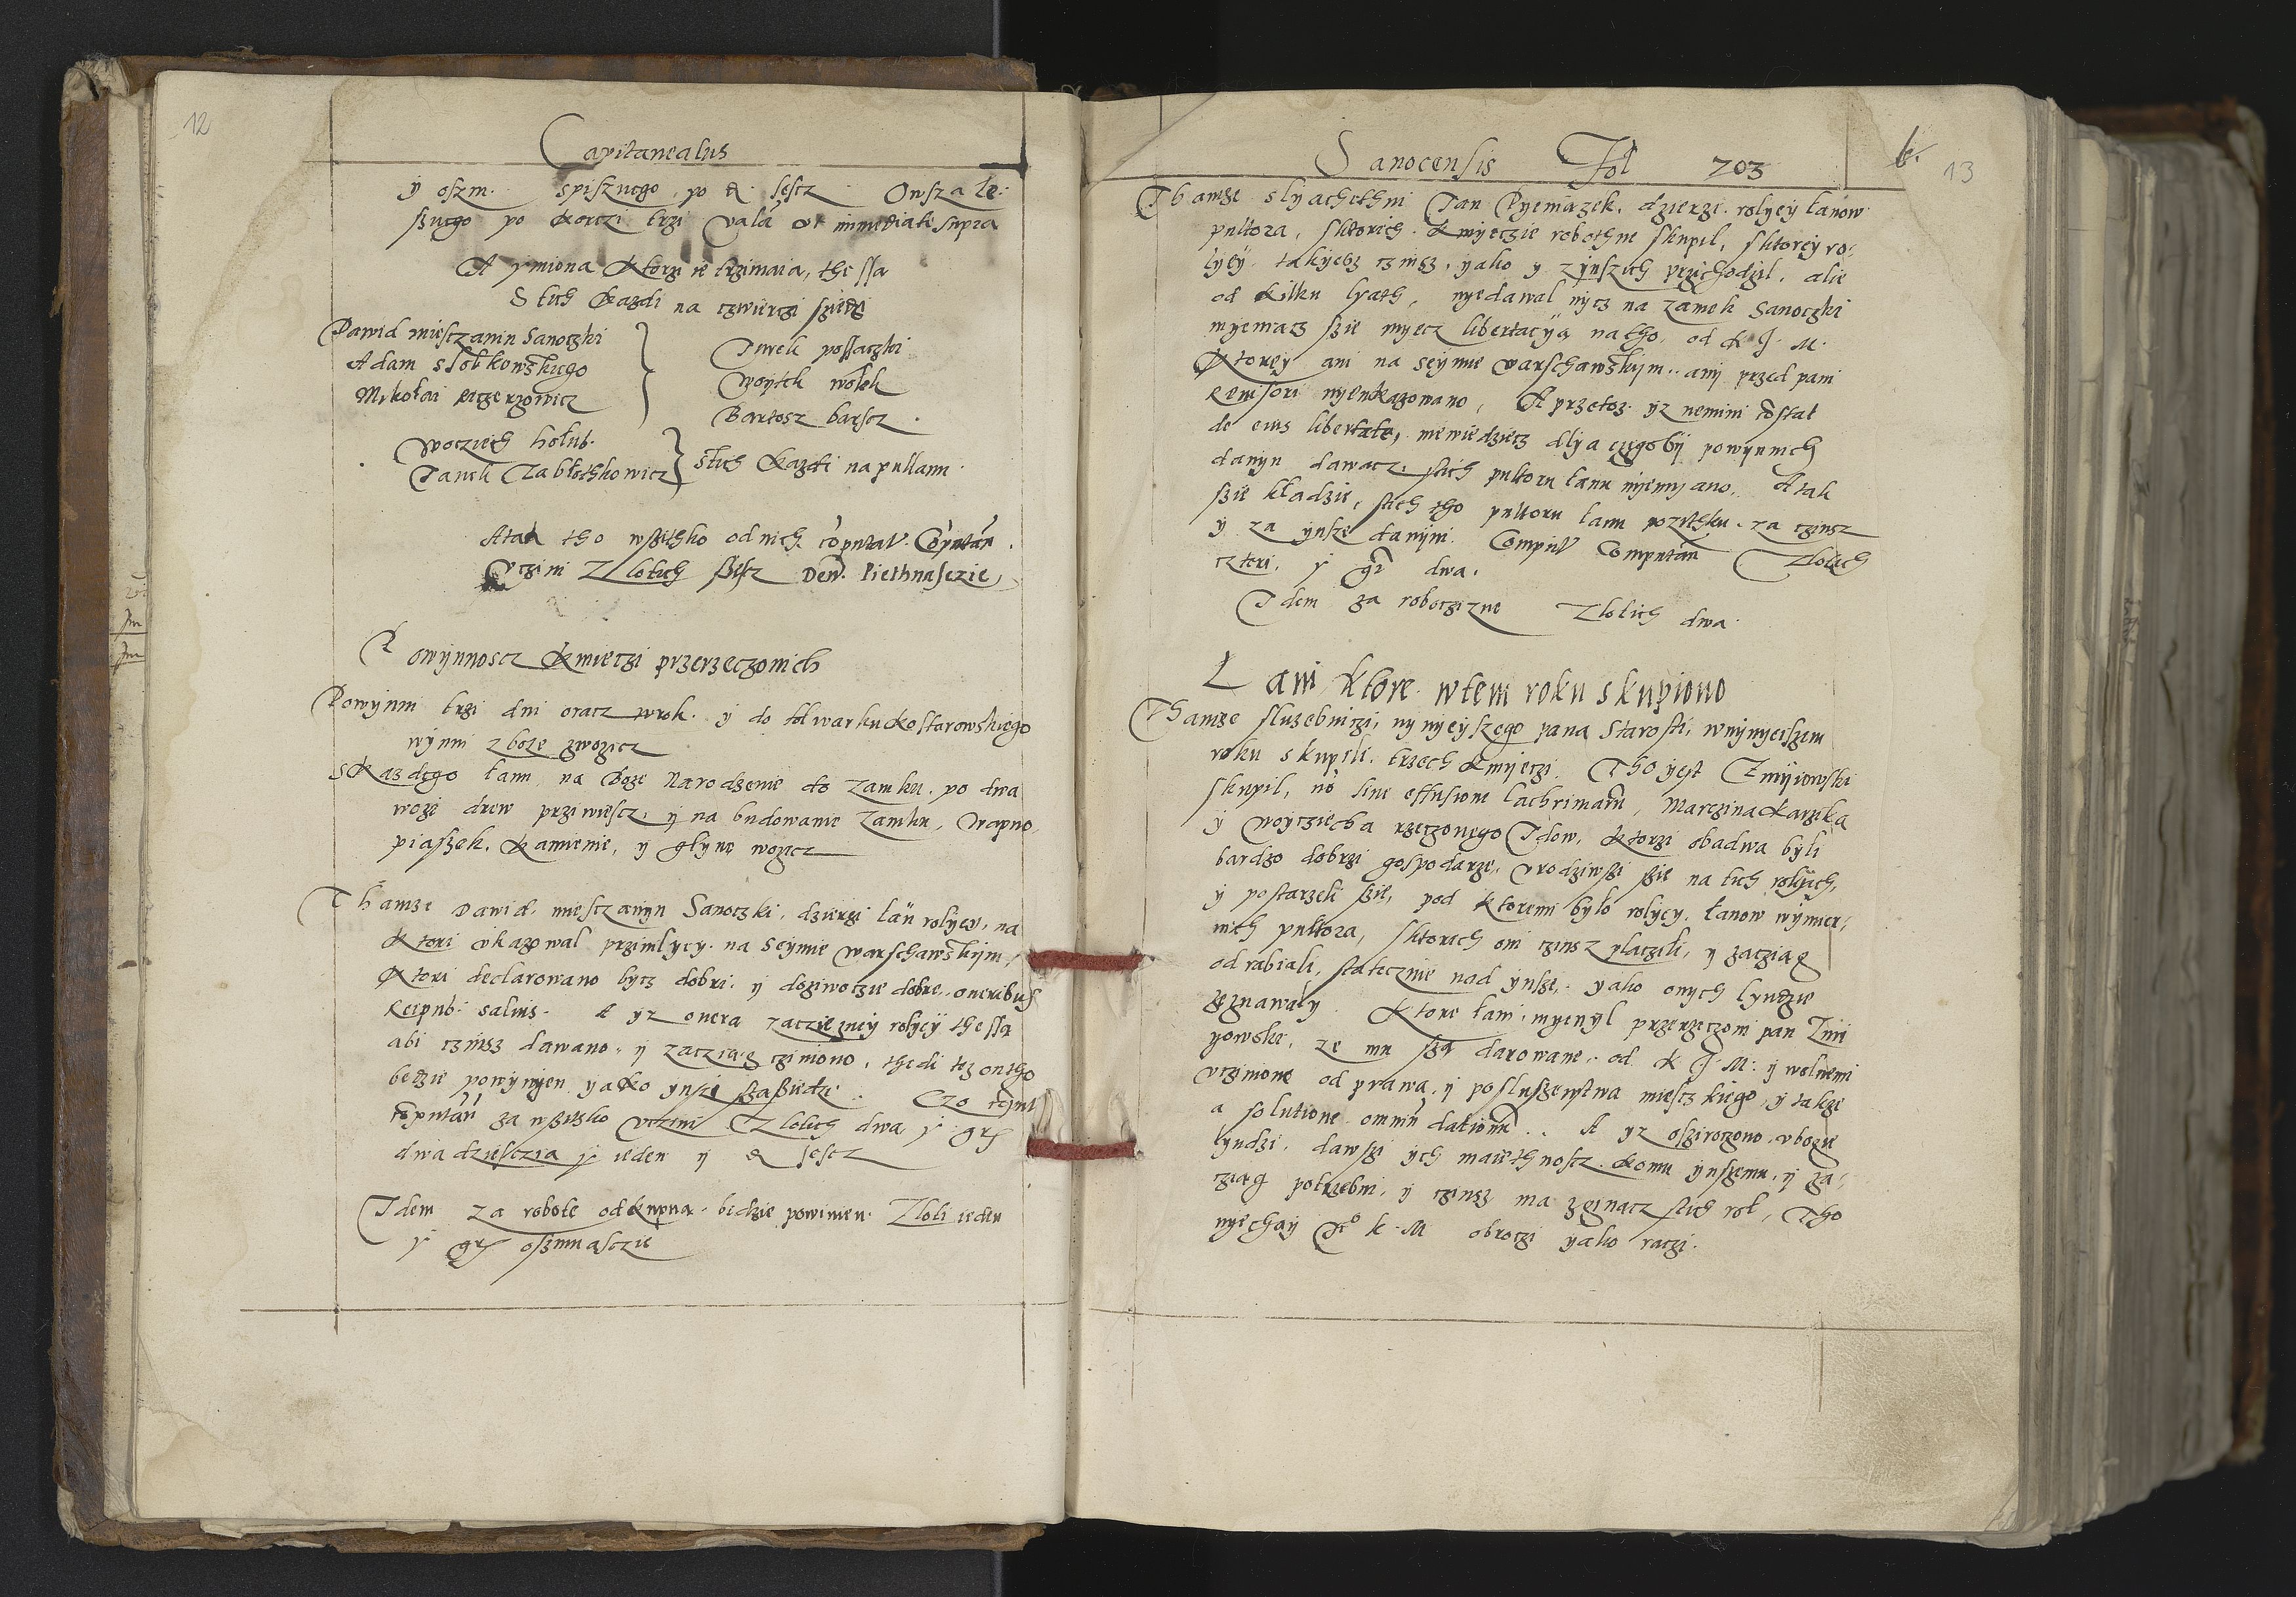 12
Capitaneatus
y oszm. spisznego po d. sescz Owsza le:
sznego po korczi trzi valā vt immediate supra
A ymiona ktorzi ie trzimaia, the ssa
S tich kazdi na czwierczi sziedzi
Dawid miesczanin Sanoczki
Adam slotkowskiego
Mikołai
Iwek possaczki
Woytek wołek
Bartosz barscz
Wocziech hołub.
Ianek Zabłothkowicz
stich kazdi na pullanu.
Atak tho wszithko od nich cōputat. Cōputān
Vczini Zlotich szescz Den. Piethnasczie
Powynnoscz kmieczi przerzeczonich
Powynni trzi dni oracz wrok. y do folwarku kostarowskiego
wynni zboze zwozicz
S kazdego łanu, na Boze Narodzenie do zamku. po dwa
wozi drew przewiescz, y na budowanie zamku, wapno,
piaszek, kamienie, y glyne wozicz
Thamze Dawid, miesczanyn Sanoczki, dzierzi łan rolyey, na
ktori vkazowal przewilyey. na Seymie warschawskiim,
ktori declarowano bycz dobri. y doziwoczie dobre, oneribus
Reipub: salvis. A yz onera zacziezney rolyey the ssa
abi czinsz dawano, y zacziag cziniono, thedi tez ontho
bedzie powynyen yako ynszi szasiedzi. Czo
cōputān za wszitko vczini Zlotich dwa y gr
dwadziesczia y ieden y d sescz
Idem za robote odkupna. bedzie powinien Zloti ieden
y gr oszmnasczie
Sanocensis Fol 203
6.
13
Thamze slyachethni Ian Pyeniazek, dzierzi rolyey łanow
pultora, sktorich kmyeczie robothne skupil, sktorey ro:
lyey takyesz czinsz, yako y zynszich przichodzil, alie
od kilku lyath, nyedawal nycz na zamek Sanoczki
myeniacz szie myecz libertacya na tho, od K J. M.
ktorey ani na Seymie warschawskiim, ani przed pani
Rewisori nyeukazowano, A przetoz yz nemini cōstat
de eius libertate, niewiedziecz dlya czegobij powynnich
danyn dawacz, stich pultoru łanu nyemyano. A tak
szie kladzie, stich tho pultoru łanu pozithku. za czinsz
y za ynsze danyni. Comput Computān Zlotich
czteri, y gr dwa.
Idem za roboczizne Zlotich dwa.
Łani ktore wtem roku skupiono
Thamze sluzebniczi, nynyeyszego pana Starosti, wnynyeiszem
roku skupili, trzech kmyeczi. Tho yest Zmijowski
skupil, nō sine effusione lachrimarū, Marczina karzika
y woycziecha rzeczonego Idow, ktorzi obadwa byli
bardzo dobrzi gospodarze, vrodziwszi szie na tich rolyach,
y postarzeli szie, pod ktoremi bylo rolyey, łanow wymier,
nich pultora, sktorich oni czinsz placzili, y zacziag
odrabiali, statecznie nad ynsze, yako onych lyudzie
zeznawaly. Ktore łani, myenyl przerzeczoni pan Zmi
yowski, ze mu sza darowane, od K J M: y wolnemi
vczinione od prawa, y posluszenstwa miesczkiego, y takze
a solutione omniū dationū. A yz osziroczono, vbogie
lyudzi, dawszi ych maiethnoscz komu ynszemu, y za:
cziag potrzebni, y czinsz ma zginacz stich rol, Tho
nyechaij Jo K. M obroczi yako raczi.